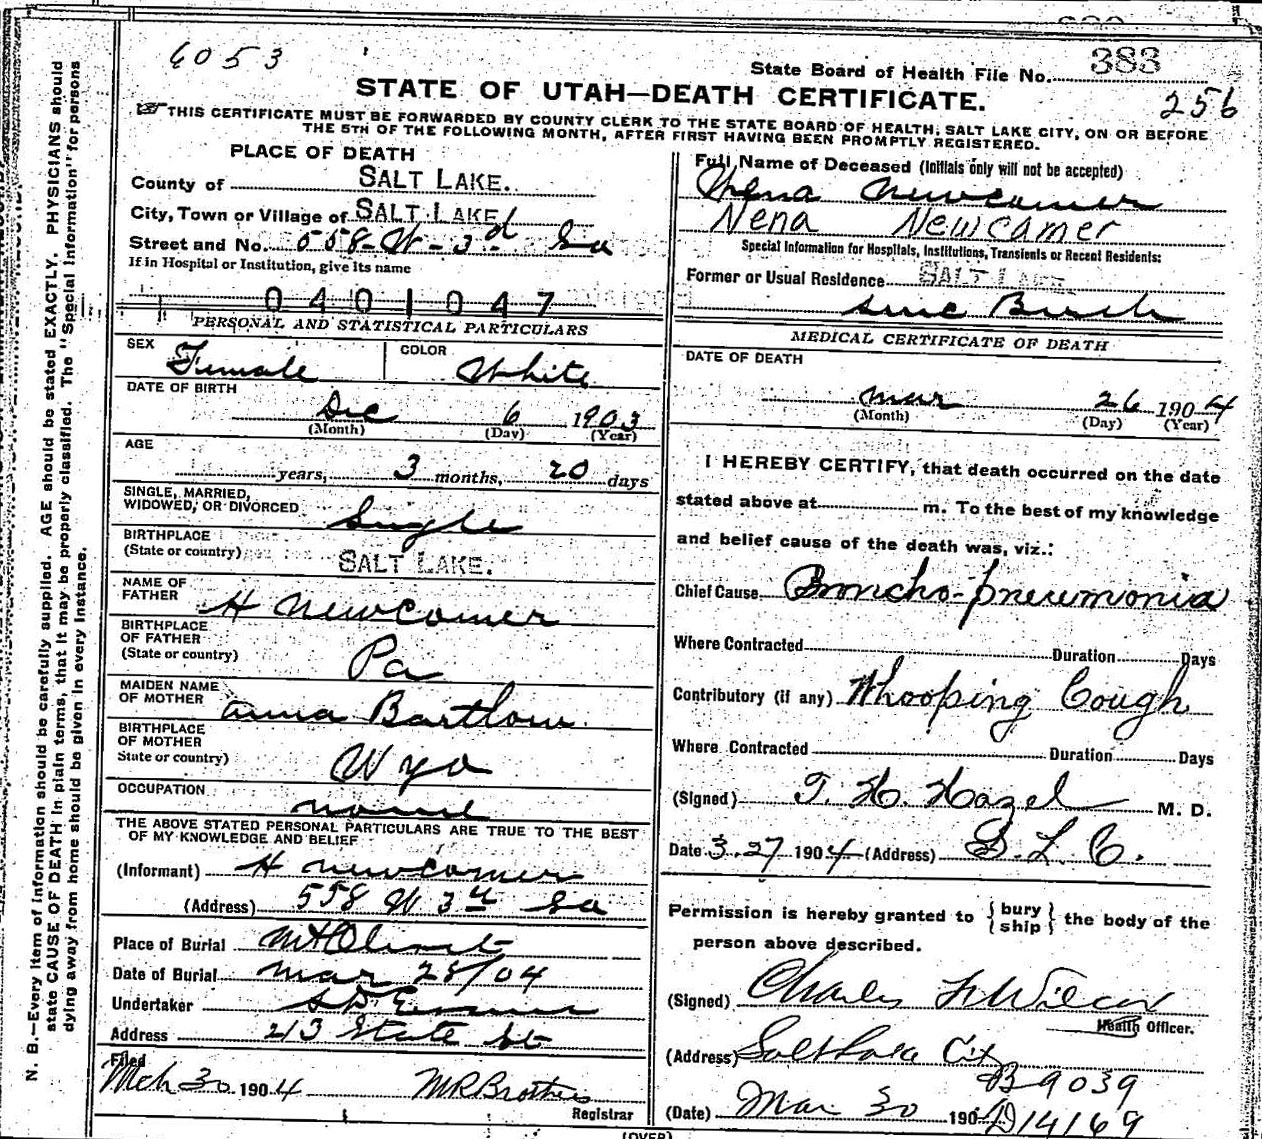 6053
383
State Board of Health File No.
256
STATE OF UTAH—DEATH CERTIFICATE.
THIS CERTIFICATE MUST BE FORWARDED BY COUNTY CLERK TO THE STATE BOARD OF HEALTH, SALT LAKE CITY, ON OR BEFORE
THE 5TH OF THE FOLLOWING MONTH, AFTER FIRST HAVING BEEN PROMPTLY REGISTERED.
N. B.—Every item of information should be carefully supplied. AGE should be stated EXACTLY. PHYSICIANS should
state CAUSE OF DEATH in plain terms, that it may be properly classified. The "Special Information" for persons
dying away from home should be given in every instance.
PLACE OF DEATH
County of SALT LAKE.
City, Town or Village of SALT LAKE
Street and No. 558 W 3d So
If in Hospital or Institution, give its name
0401047
PERSONAL AND STATISTICAL PARTICULARS
SEX Female COLOR White
DATE OF BIRTH
Dec 6 1903
(Month) (Day) (Year)
AGE
years, 3 months, 20 days
SINGLE, MARRIED,
WIDOWED, OR DIVORCED Single
BIRTHPLACE
(State or country) SALT LAKE.
NAME OF
FATHER H Newcomer
BIRTHPLACE
OF FATHER
(State or country) Pa
MAIDEN NAME
OF MOTHER Anna Bartlow
BIRTHPLACE
OF MOTHER
State or country) Wyo
OCCUPATION
THE ABOVE STATED PERSONAL PARTICULARS ARE TRUE TO THE BEST
OF MY KNOWLEDGE AND BELIEF
(Informant) H Newcomer
(Address) 558 W 3d So
Place of Burial Mt Olivet
Date of Burial Mar 28/04
Undertaker
Address 213 State St
Filed
Mch 30 1904 MR Brothers
Registrar
Full Name of Deceased (Initials only will not be accepted)
Newcomer
Nena Newcamer
Special Information for Hospitals, Institutions, Transients or Recent Residents:
Former or Usual Residence SALT LAKE
since Birth
MEDICAL CERTIFICATE OF DEATH
DATE OF DEATH
Mar 26 1904
(Month) (Day) (Year)
I HEREBY CERTIFY, that death occurred on the date
stated above at m. To the best of my knowledge
and belief cause of the death was, viz.:
Chief Cause Broncho-pneumonia
Where Contracted Duration Days
Contributory (if any) Whooping Cough
Where Contracted Duration Days
(Signed) T. H. Hazel M. D.
Date 3.27 1904 (Address) S. L. C.
Permission is hereby granted to {bury ship} the body of the
person above described.
(Signed) Charles F Wilcox
Health Officer.
(Address) Salt Lake City
B9039
(Date) Mar 30 190 D14169
(OVER)